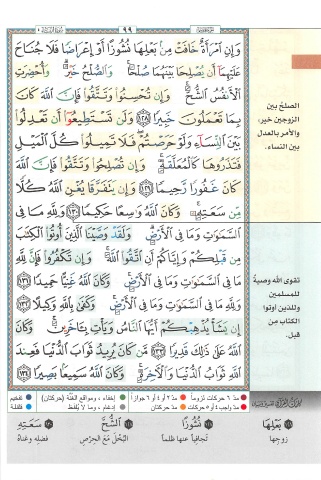 ٩٩
وَإِنِ ٱمْرَأَةٌ خَافَتْ مِنۢ بَعْلِهَا نُشُوزًا أَوْ إِعْرَاضًا فَلَا جُنَاحَ
عَلَيْهِمَآ أَن يُصْلِحَا بَيْنَهُمَا صُلْحًا ۚ وَٱلصُّلْحُ خَيْرٌ ۗ وَأُحْضِرَتِ
ٱلْأَنفُسُ ٱلشُّحَّ ۚ وَإِن تُحْسِنُوا۟ وَتَتَّقُوا۟ فَإِنَّ ٱللَّهَ كَانَ
بِمَا تَعْمَلُونَ خَبِيرًا ١٢٨ وَلَن تَسْتَطِيعُوٓا۟ أَن تَعْدِلُوا۟
بَيْنَ ٱلنِّسَآءِ وَلَوْ حَرَصْتُمْ ۖ فَلَا تَمِيلُوا۟ كُلَّ ٱلْمَيْلِ
فَتَذَرُوهَا كَٱلْمُعَلَّقَةِ ۚ وَإِن تُصْلِحُوا۟ وَتَتَّقُوا۟ فَإِنَّ ٱللَّهَ
كَانَ غَفُورًا رَّحِيمًا ١٢٩ وَإِن يَتَفَرَّقَا يُغْنِ ٱللَّهُ كُلًّا
مِّن سَعَتِهِۦ ۚ وَكَانَ ٱللَّهُ وَٰسِعًا حَكِيمًا ١٣٠ وَلِلَّهِ مَا فِى
ٱلسَّمَٰوَٰتِ وَمَا فِى ٱلْأَرْضِ ۗ وَلَقَدْ وَصَّيْنَا ٱلَّذِينَ أُوتُوا۟ ٱلْكِتَٰبَ
مِن قَبْلِكُمْ وَإِيَّاكُمْ أَنِ ٱتَّقُوا۟ ٱللَّهَ ۚ وَإِن تَكْفُرُوا۟ فَإِنَّ لِلَّهِ
مَا فِى ٱلسَّمَٰوَٰتِ وَمَا فِى ٱلْأَرْضِ ۚ وَكَانَ ٱللَّهُ غَنِيًّا حَمِيدًا ١٣١
وَلِلَّهِ مَا فِى ٱلسَّمَٰوَٰتِ وَمَا فِى ٱلْأَرْضِ ۚ وَكَفَىٰ بِٱللَّهِ وَكِيلًا ١٣٢
إِن يَشَأْ يُذْهِبْكُمْ أَيُّهَا ٱلنَّاسُ وَيَأْتِ بِـَٔاخَرِينَ ۚ وَكَانَ
ٱللَّهُ عَلَىٰ ذَٰلِكَ قَدِيرًا ١٣٣ مَّن كَانَ يُرِيدُ ثَوَابَ ٱلدُّنْيَا فَعِندَ
ٱللَّهِ ثَوَابُ ٱلدُّنْيَا وَٱلْءَاخِرَةِ ۚ وَكَانَ ٱللَّهُ سَمِيعًۢا بَصِيرًا ١٣٤
الصلح بين
الزوجين خير،
والأمر بالعدل
بين النساء.
تقوى الله وصية
للمسلمين
وللذين اوتوا
الكتاب من
قبل.
مدّ ٦ حركات لزوماً مدّ ٢ أو ٤ أو ٦ جوازاً إخفاء، ومواقع الغُنَّة (حركتان) تفخيم
مدّ واجب ٤ أو ٥ حركات مدّ حركتان إدغام، وما لا يُلفَظ قلقلة
بَعْلِهَا
زوجها
نُشُوزًا
تجافياً عنها ظلماً
الشُّحَّ
البُخلَ مع الحِرْصِ
سَعَتِهِ
فضله وغناه